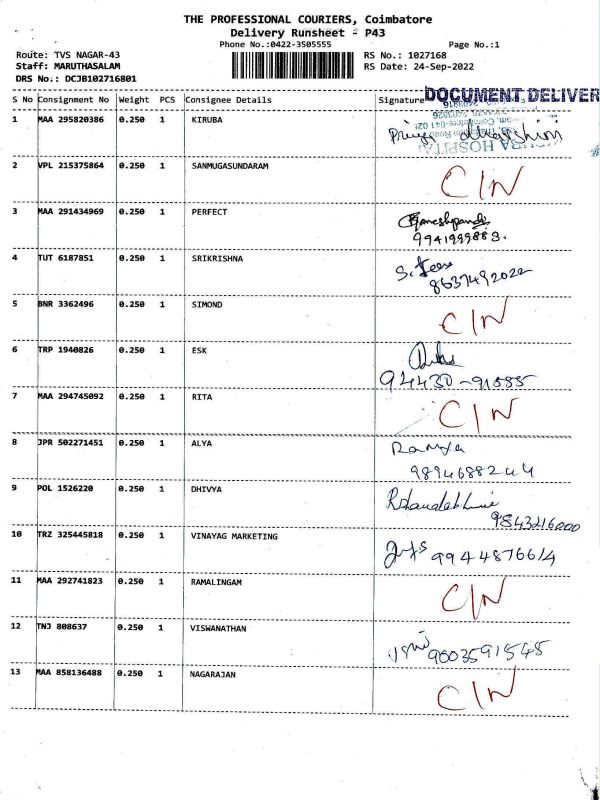 THE PROFESSIONAL COURIERS, Coimbatore
Delivery Runsheet - P43
Phone No.:0422-3505555
Page No.:1
Route: TVS NAGAR-43
RS No.: 1027168
Staff: MARUTHASALAM
RS Date: 24-Sep-2022
DRS No.: DCJB102716801
DOCUMENT DELIVER
S No Consignment No Weight PCS Consignee Details Signature
1 MAA 295820386 0.250 1 KIRUBA
HOSPITAL
2 VPL 215375864 0.250 1 SANMUGASUNDARAM C/N
3 MAA 291434969 0.250 1 PERFECT
9941999883
4 TUT 6187851 0.250 1 SRIKRISHNA
8637492022
5 BNR 3362496 0.250 1 SIMOND C/N
6 TRP 1940826 0.250 1 ESK
94430-91555
7 MAA 294745092 0.250 1 RITA C/N
8 JPR 502271451 0.250 1 ALYA Ramya
9894688244
9 POL 1526220 0.250 1 DHIVYA
9843216000
10 TRZ 325445818 0.250 1 VINAYAG MARKETING 9944876614
11 MAA 292741823 0.250 1 RAMALINGAM C/N
12 TNJ 808637 0.250 1 VISWANATHAN 9003591545
13 MAA 858136488 0.250 1 NAGARAJAN C/N